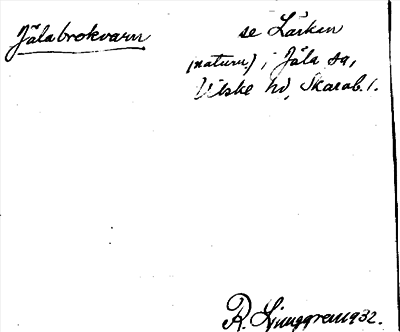 Jälabrokvarn se Lärken
(naturn.) i Jäla sn,
Vilske hd, Skarab. l.
R. Ljunggren 1932.